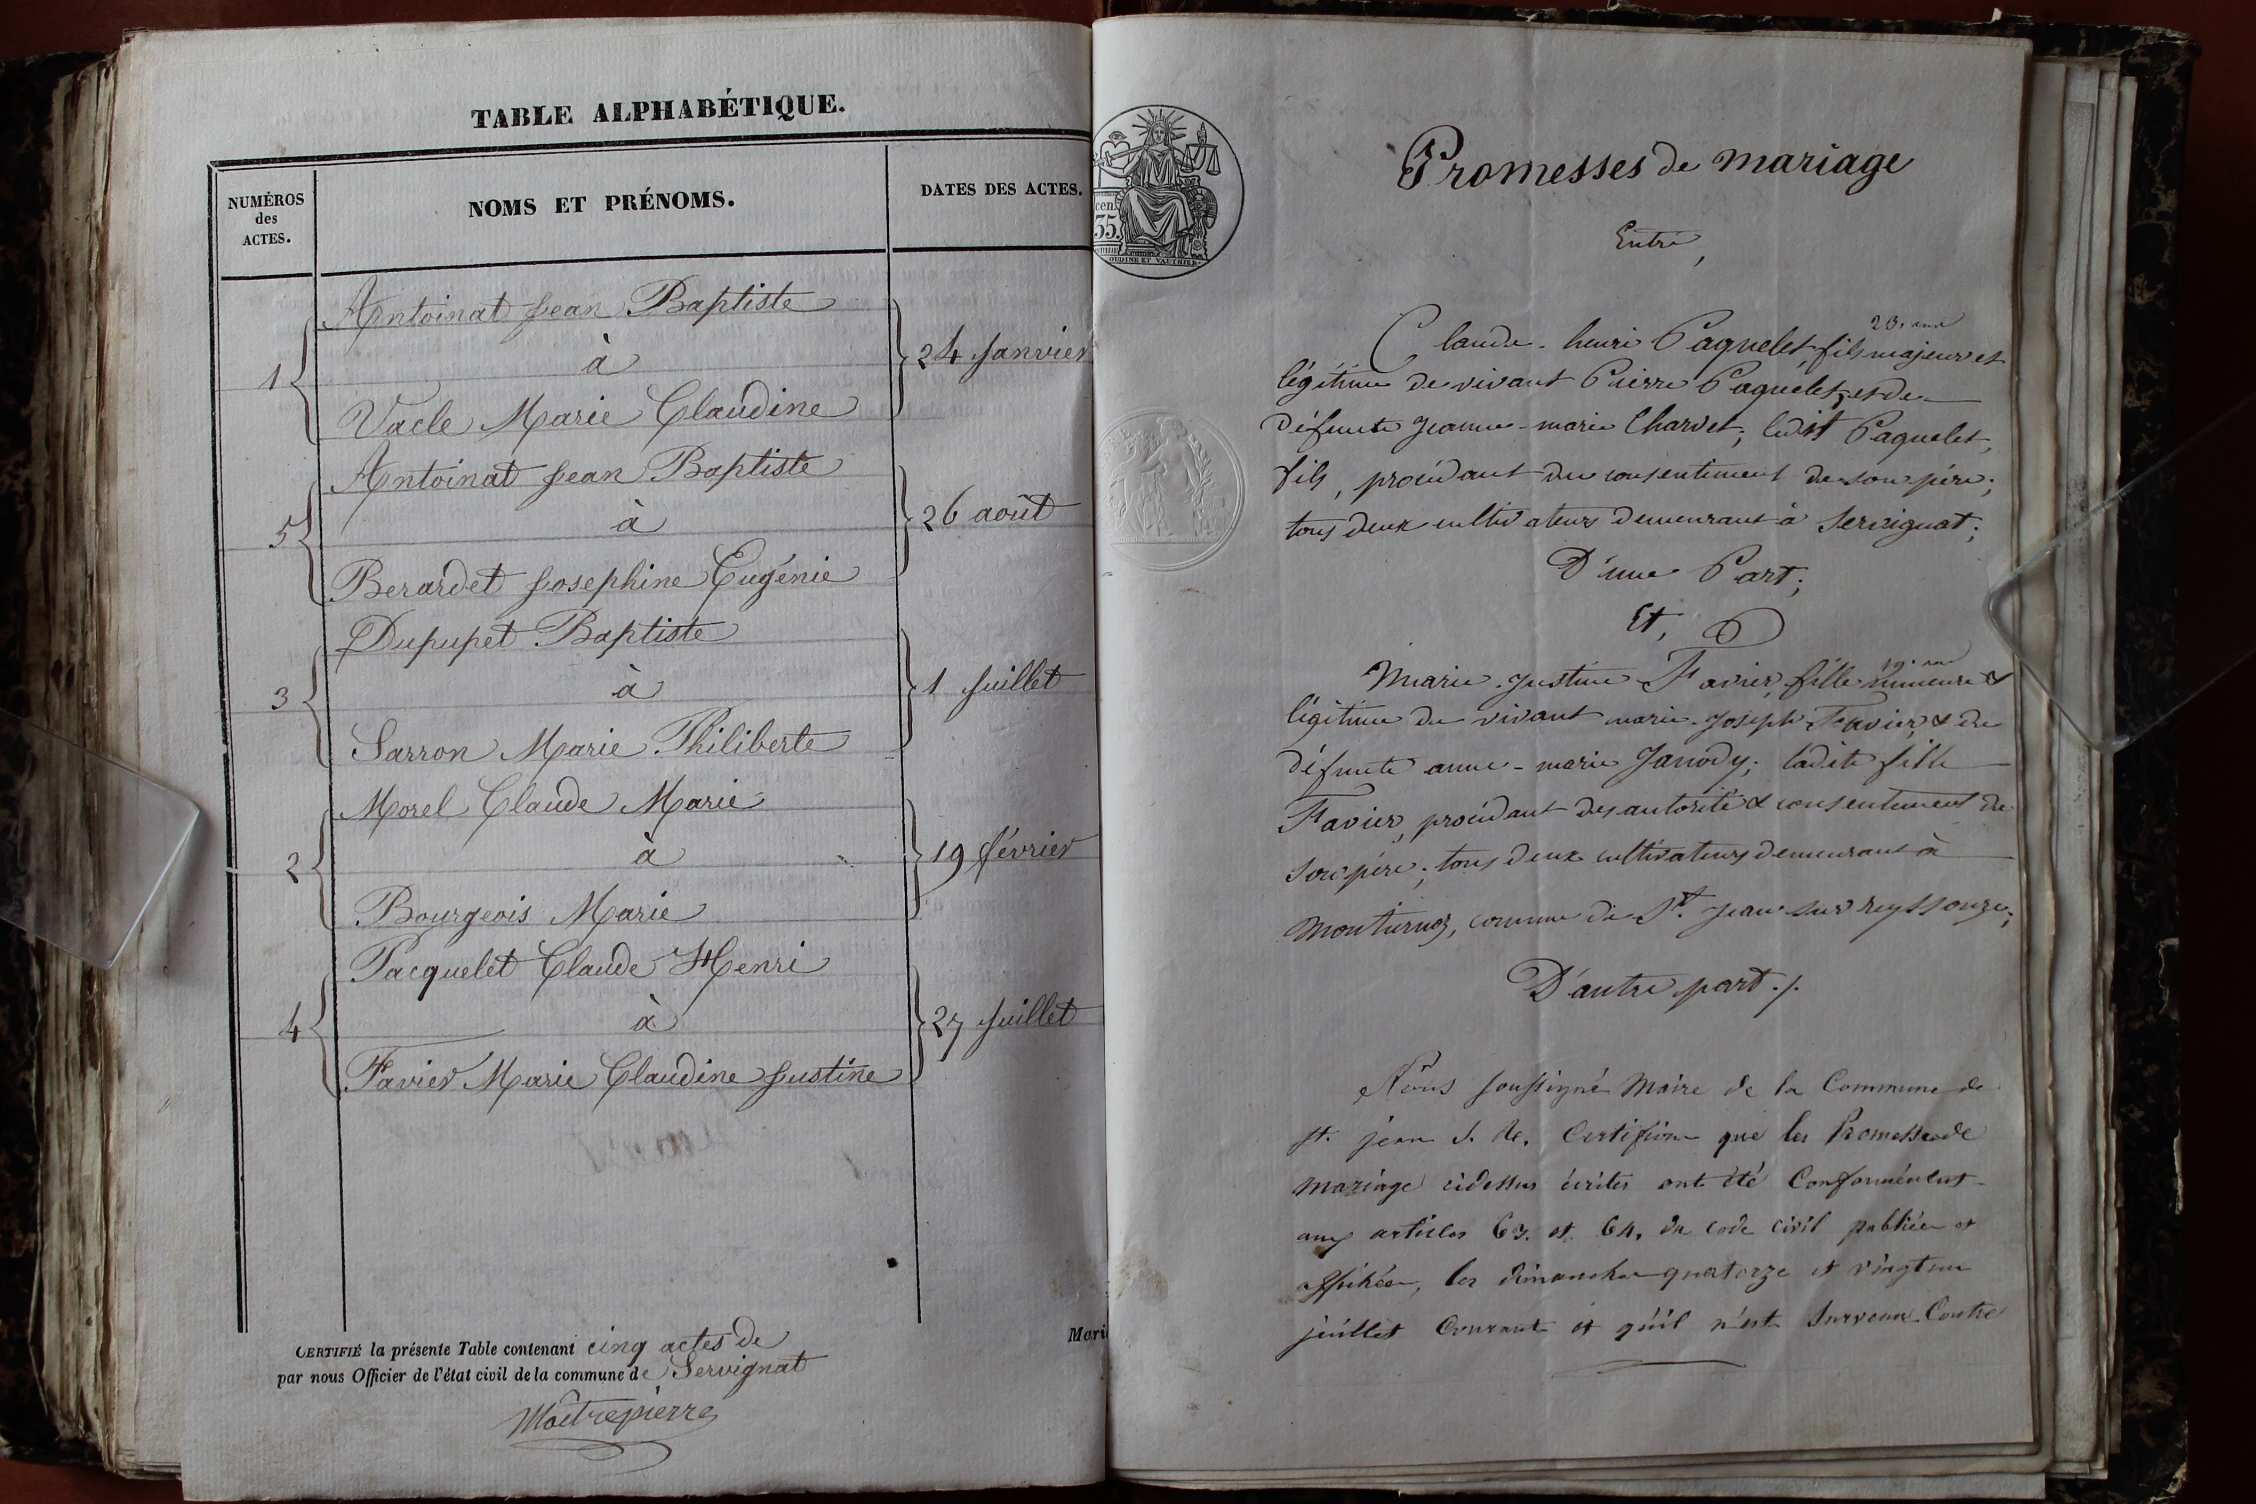 TABLE ALPHABÉTIQUE.
NUMÉROS
des
ACTES.
NOMS ET PRÉNOMS.
DATES DES ACTES.
Antoinat Jean Baptiste
1 à 24 Janvier
Vacle Marie Claudine
Antoinat Jean Baptiste
5 à 26 août
Berardet Josephine Eugénie
Dupupet Baptiste
3 à 1 Juillet
Sarron Marie Philiberte
Morel Claude Marie
2 à 19 février
Bourgeois Marie
Pacquelet Claude Henri
4 à 27 Juillet
Favier Marie Claudine Justine
CERTIFIÉ la présente Table contenant cinq actes de
par nous Officier de l'état civil de la commune de Servignat
Maîtrepierre
Mari
cen.
35.
OUDINE ET VAUTHIER
Promesses de mariage
Entre,
23. ans
Claude-henri Paquelet, fils majeur et
légitime de vivant Pierre Paquelet, et de
défunte Jeanne-marie Charvet; ledit Paquelet,
fils, procédant du consentiment de son père;
tous deux cultivateurs demeurant à Servignat;
D'une Part;
Et,
19. ans
Marie-Justine Favier, fille mineure &
légitime de vivant marie-Joseph Favier, & de
défunte anne-marie Janody; ladite fille
Favier, procédant des autorité & consentement de
son père; tous deux cultivateurs demeurant à
Monturnoz, comune de St. Jean sur reyssouze;
D'autre part./.
Nous soussigné Maire de la Commune de
St. jean S. R. Certifions que les Promesses de
mariage cidessus écrites ont été Conformément
aux articles 63. et 64. du code civil publiées et
affichées, les dimanches quatorze et vingt un
juillet Courant et qu'il n'est Survenu Contre